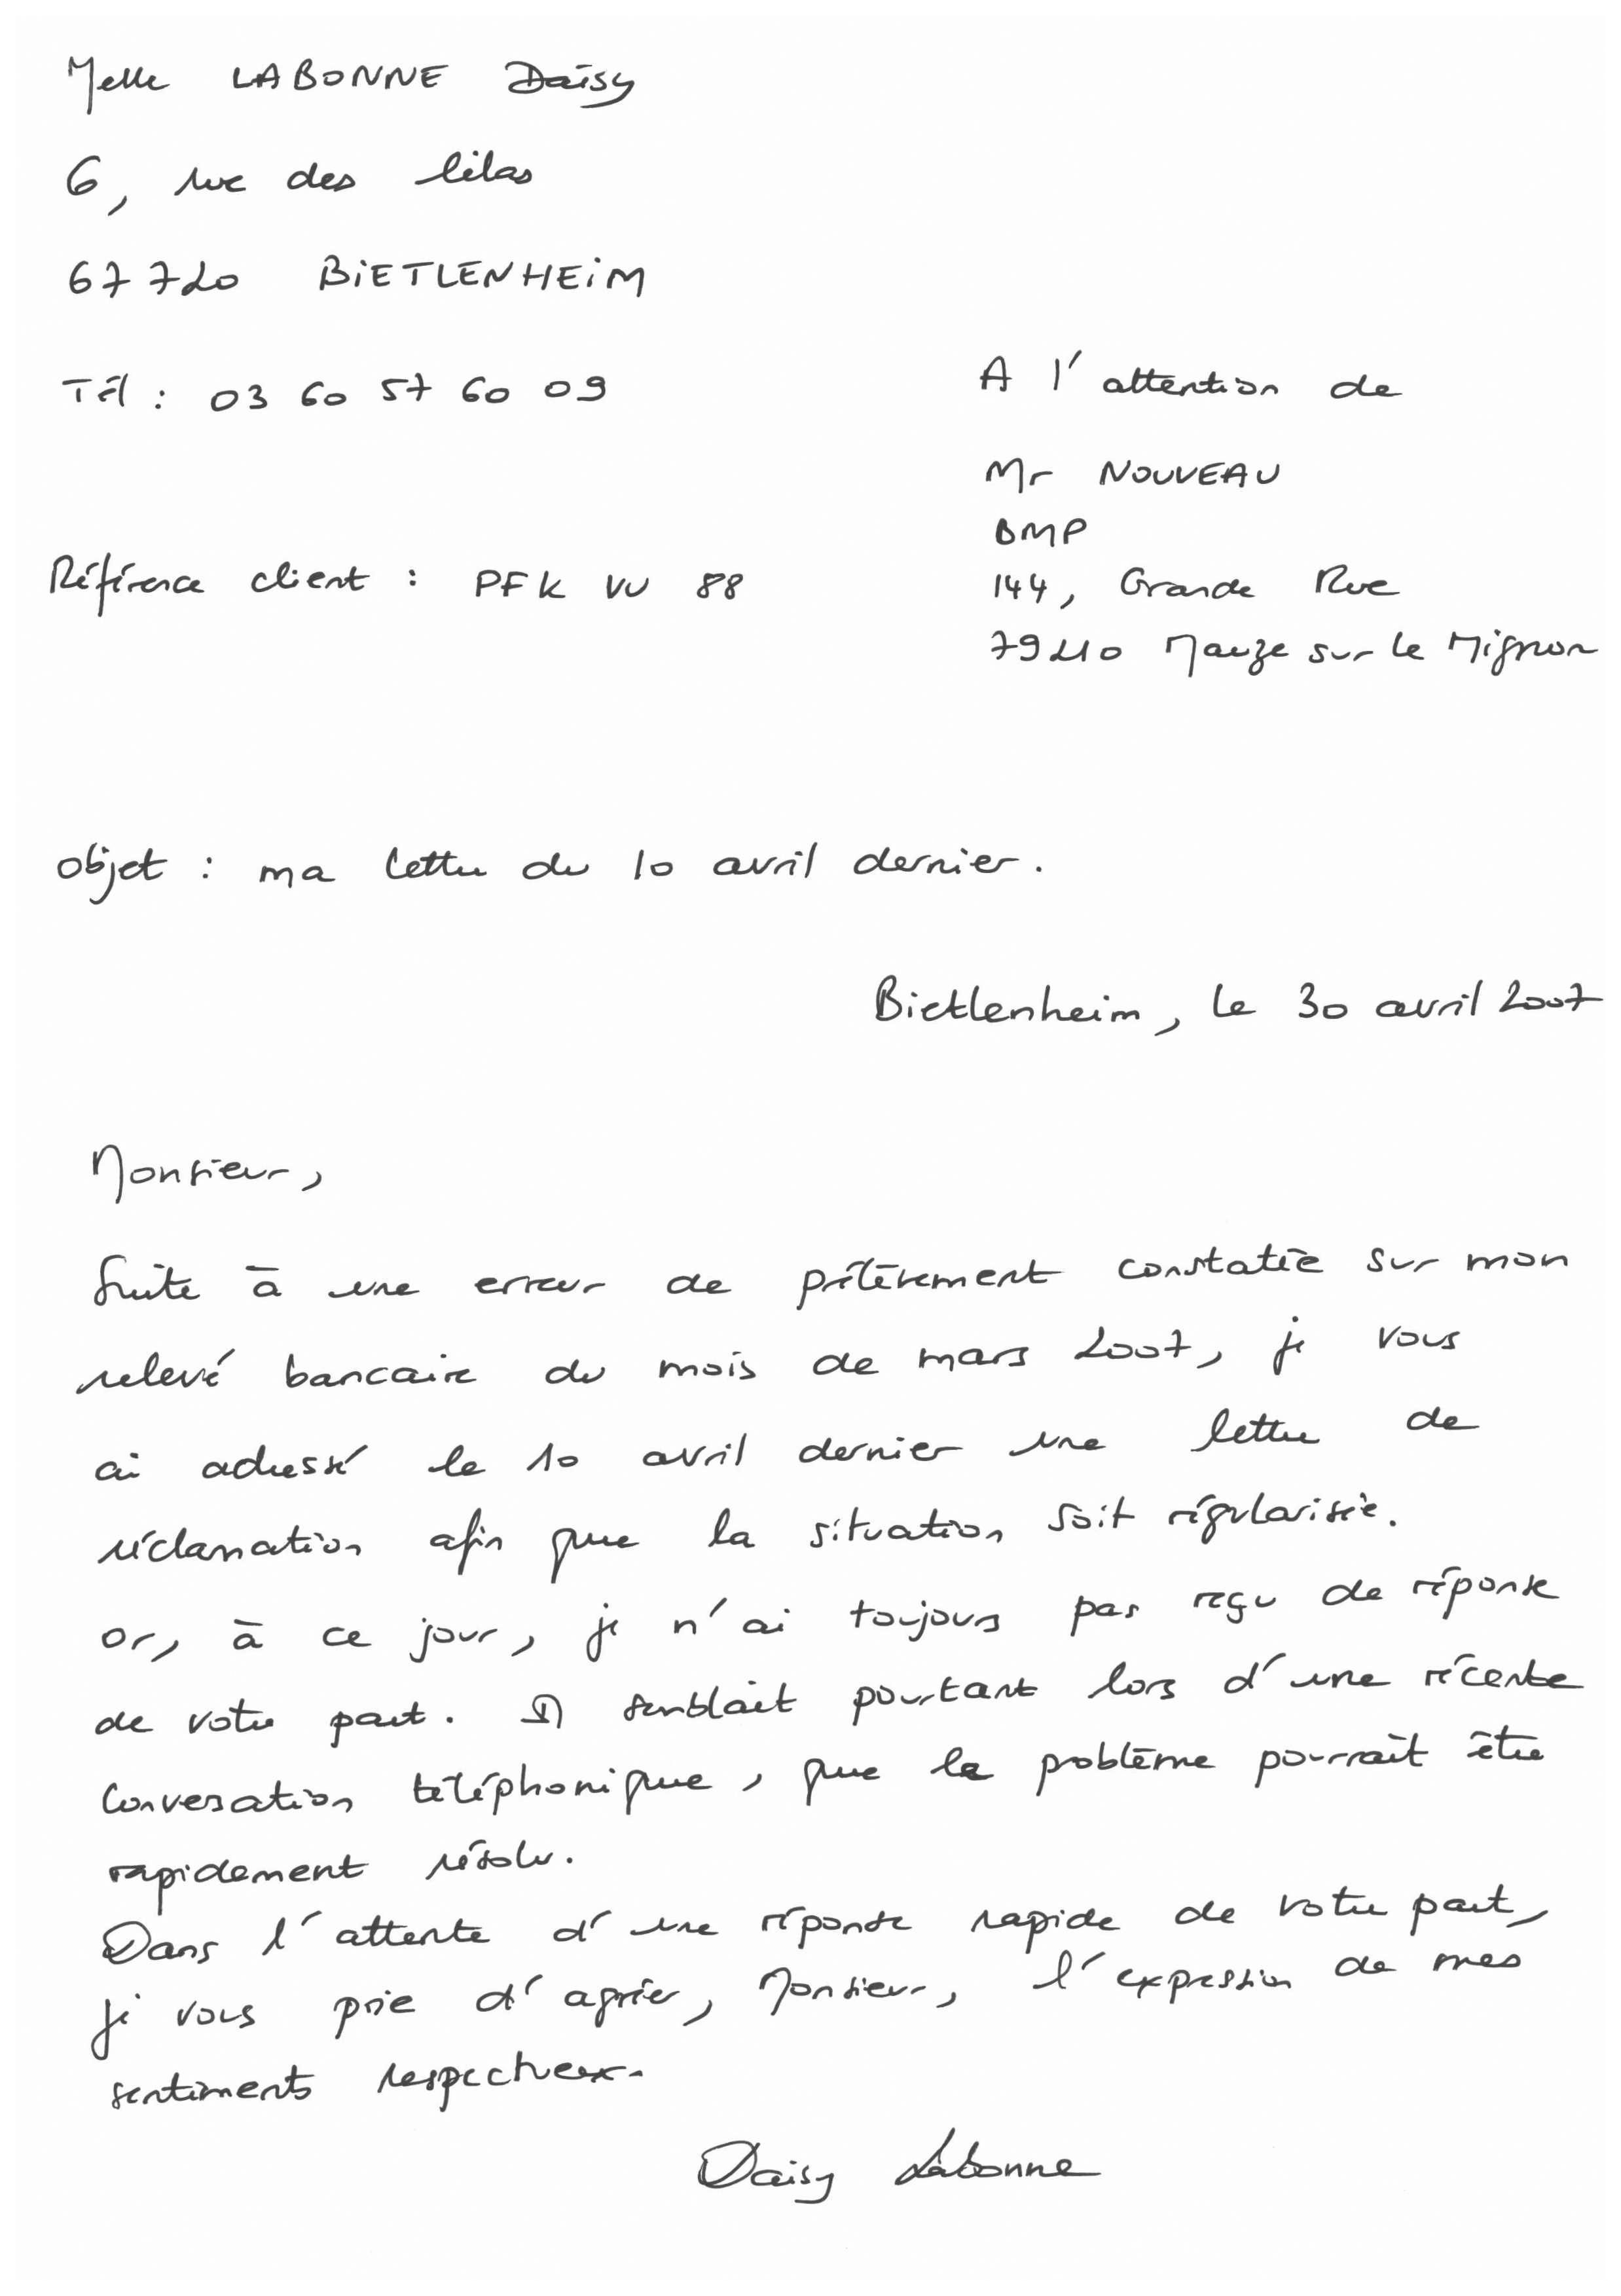 Melle LABONNE Daisy
6, rue des lilas
67720 BIETLENHEIM
Tél : 03 60 57 60 09
A l'attention de
Mr NOUVEAU
BMP
144, Grande Rue
79210 Mauze sur le Mignon
Référence client : PFK VU 88
Objet : ma lettre du 10 avril dernier.
Bietlenheim, le 30 avril 2007
Monsieur,
Suite à une erreur de prélèvement constatée sur mon
relevé bancaire du mois de mars 2007, je vous
ai adressé le 10 avril dernier une lettre de
réclamation afin que la situation soit régularisée.
Or, à ce jour, je n'ai toujours pas reçu de réponse
de votre part. Il semblait pourtant lors d'une récente
conversation téléphonique, que le problème pourrait être
rapidement résolu.
Dans l'attente d'une réponse rapide de votre part,
je vous prie d'agréer, Monsieur, l'expression de mes
sentiments respectueux.
Daisy Labonne